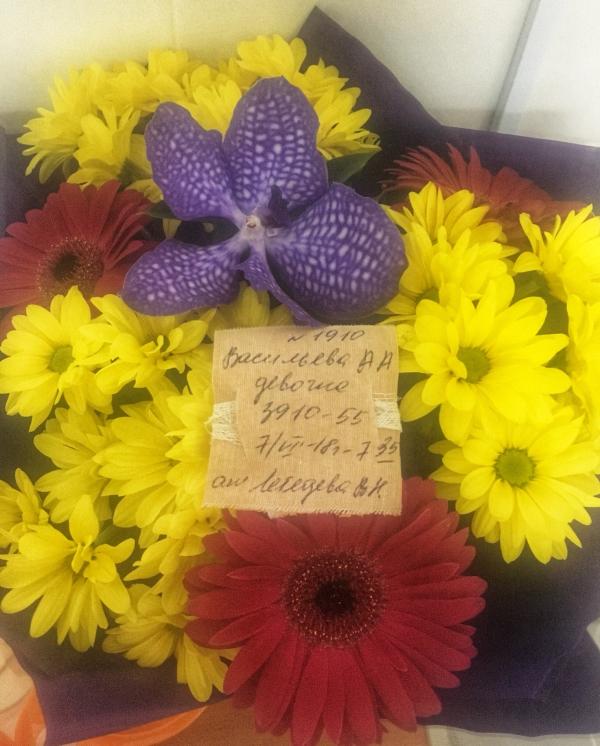 N 1910
Васильева А А
девочка
3910-55
7/VII-18г-7 35
ак Лебедева В.К.